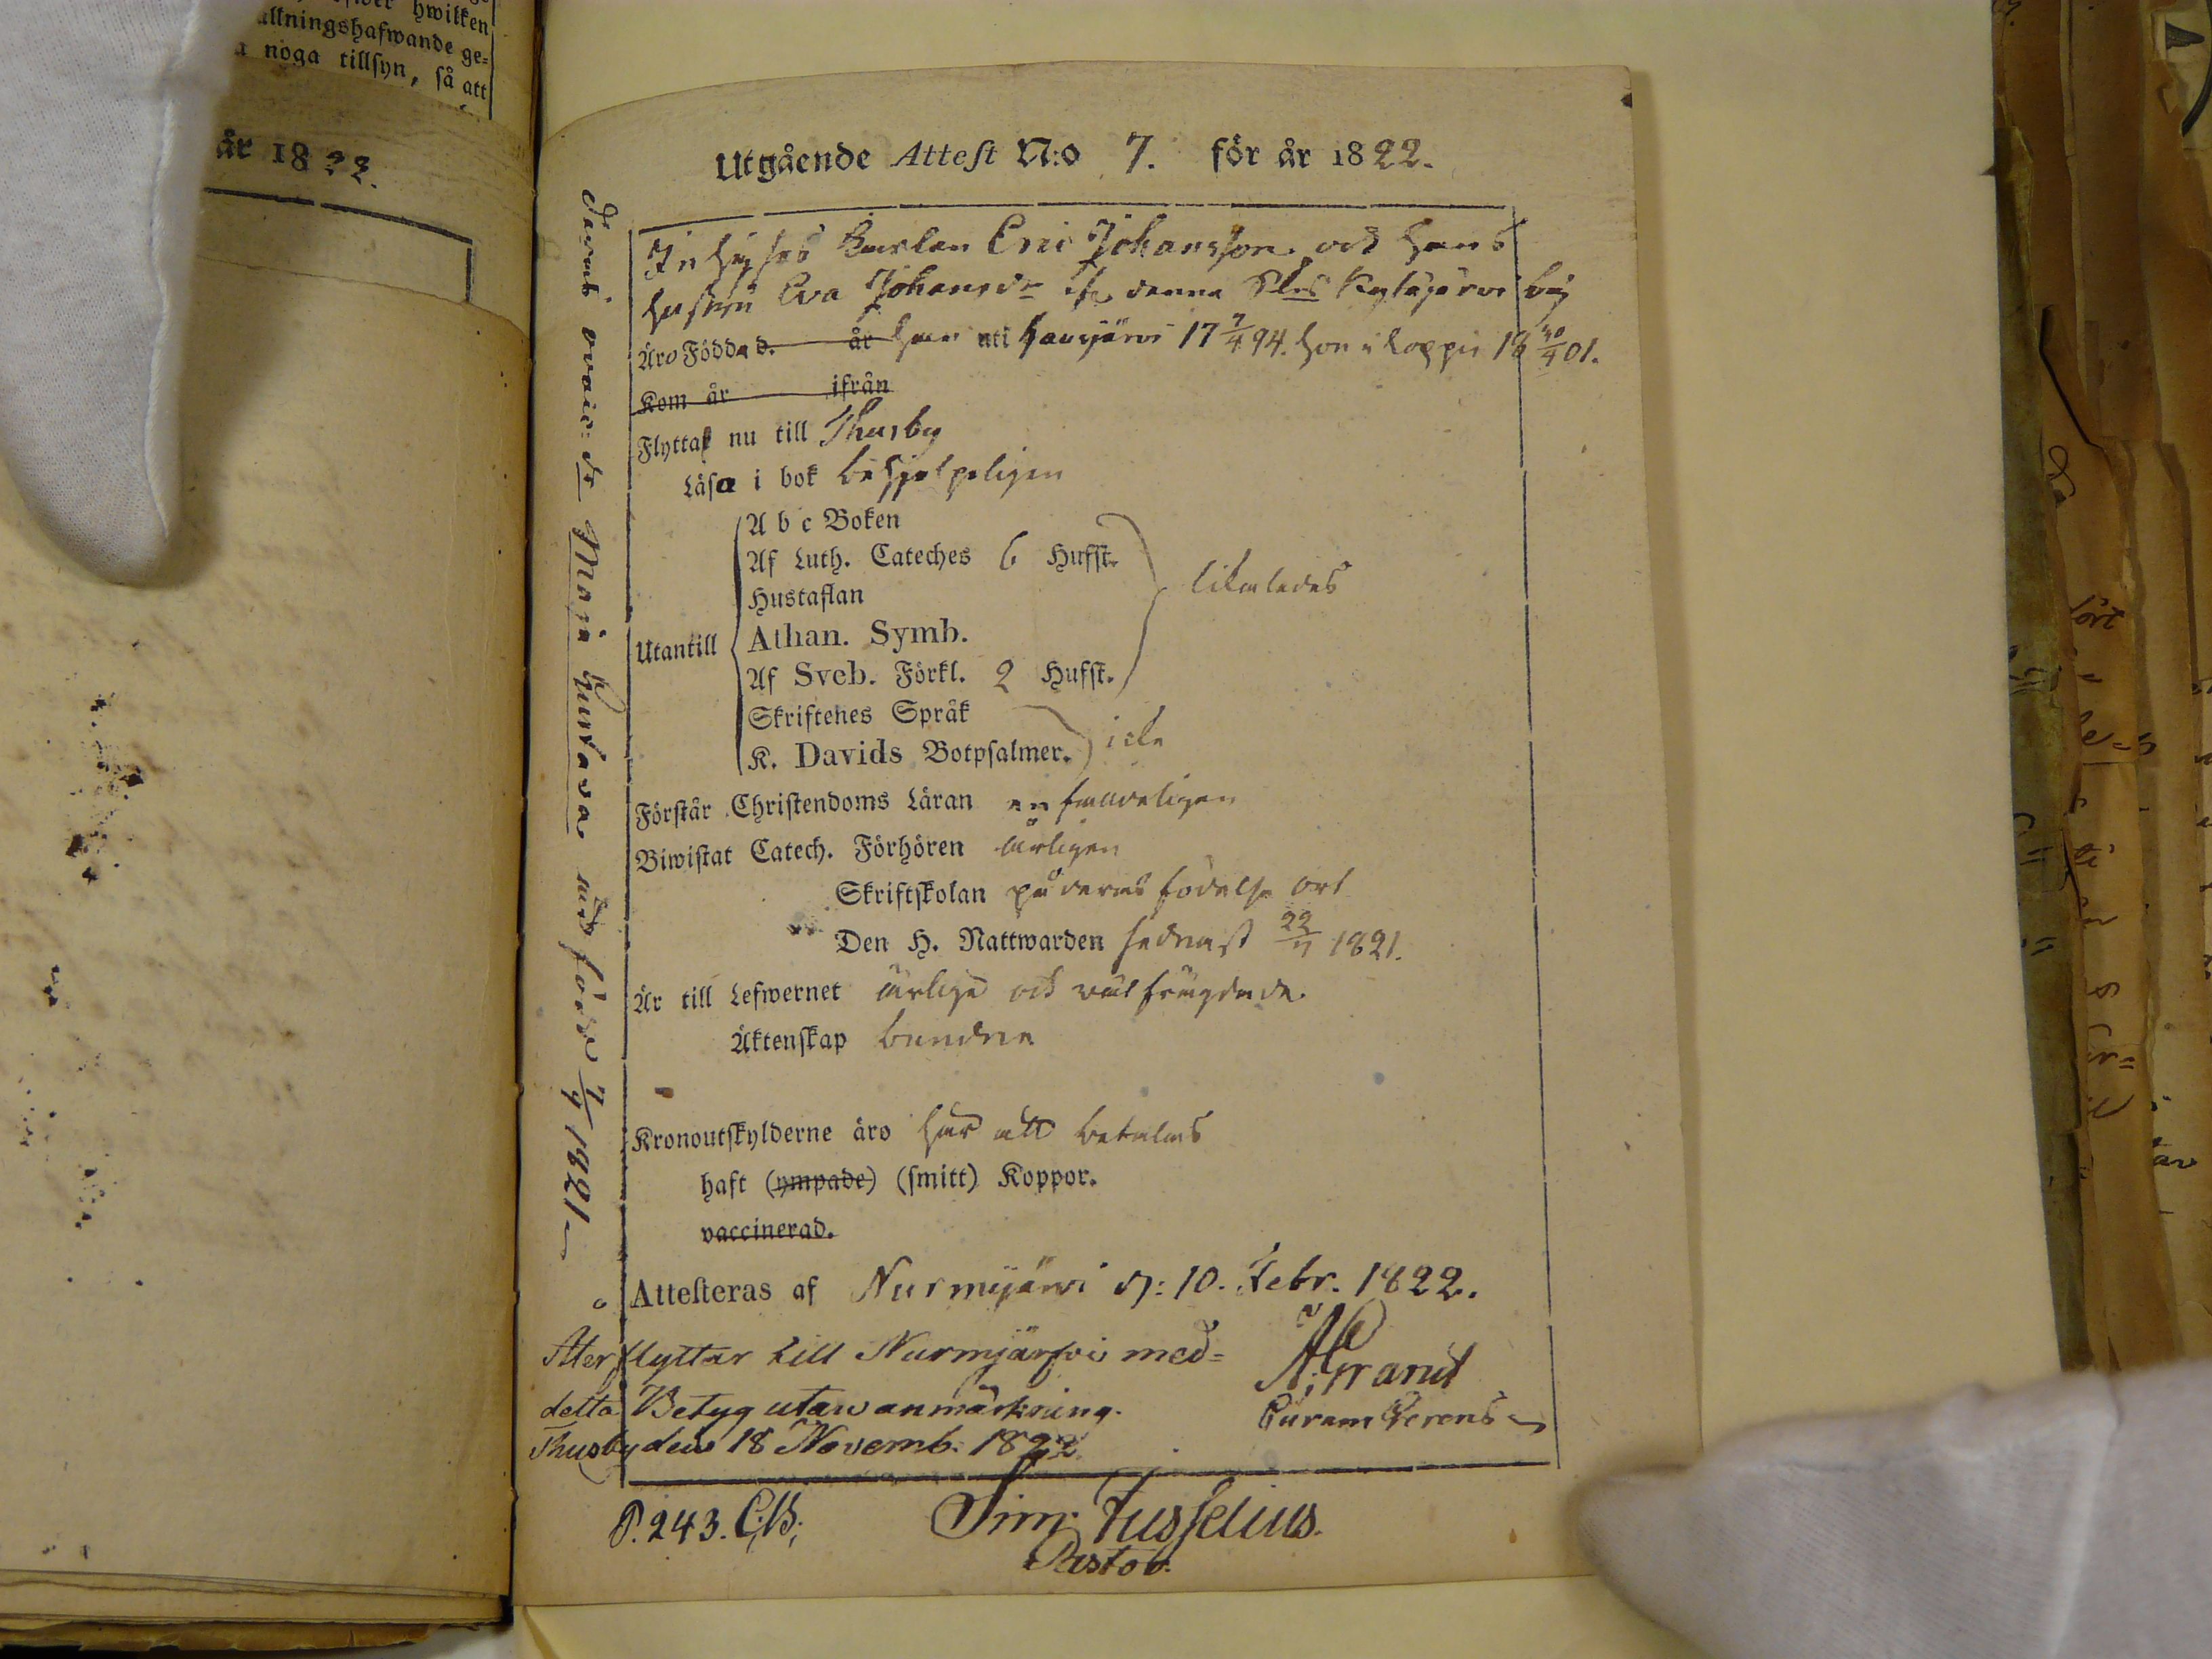 hwilken
allningshafwande ge-
noga tillsyn, så att
år 1822.
Utgående Attest N:o 7. för år 1822.
Inhyses karlen Eric Johansson och hans
hustru Eva Johansdr ifr. denna Skns Kytäjärvi by
Äro Födda d. år han uti Hausjärvi 17 7/4 94. hon i Loppis 18 30/4 01.
Kom år ifrån
Flyttar nu till Thusby
Läsa i bok behjelpeligen
Utantill
A b c Boken
Af Luth. Cateches 6 Hufst.
Hustaflan
Athan. Symb.
Af Sveb. Förkl. 2 Hufst.
likaledes
Skriftenes Språk
K. Davids Botpsalmer.
icke
Förstår Christendoms Läran enfaldeligen
Biwistat Catech. Förhören årligen
Skriftskolan på deras födelse ort
Den H. Nattwarden sednast 22/7 1821.
Är till Lefwernet ärlige och välfrägdade.
Äktenskap bundne
Kronoutskylderne äro här att betalas
haft (ympade) (smitt) Koppor.
vaccinerad.
Attesteras af Nurmijärvi d: 10. Febr. 1822.
Återflyttar till Nurmijärfvi med-
detta Betyg utan anmärkning.
Thusby den 18 Novemb. 1822.
P. 243. C.B.
Sim. Fusselius.
Pastor.
Deras Maja Gustava född 7/9 1821